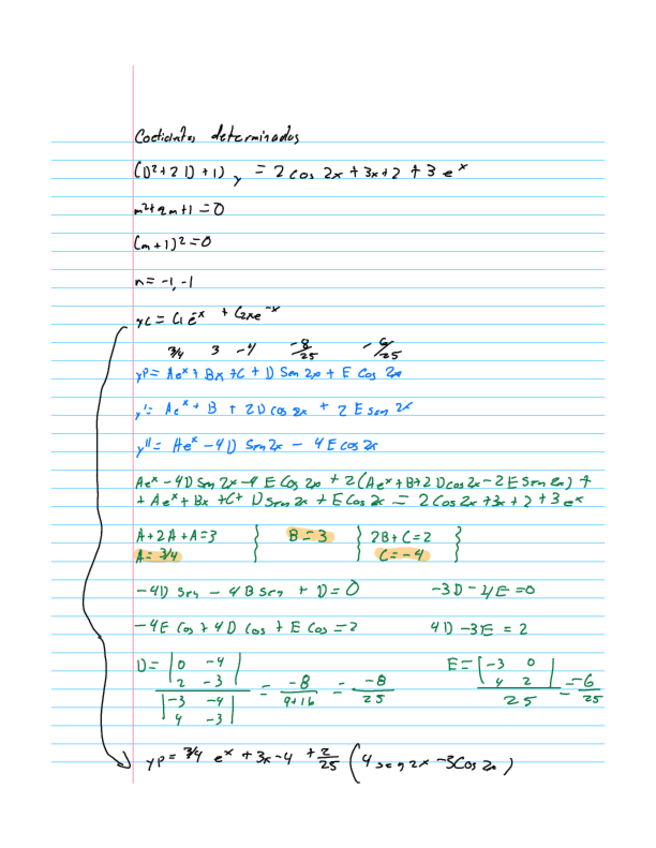 Coeficientes determinados
(D²+2D+1)y = 2cos 2x+3x+2+3e^x
m²+2m+1=0
(m+1)²=0
n= -1,-1
yc= C₁e^-x + C₂xe^-x
3/4 3 -4 -8/25 -6/25
yp= Ae^x+Bx+C+D Sen 2x+E Cos 2x
y'= Ae^x+B+2D cos 2x + 2E sen 2x
y''= Ae^x-4D Sen 2x - 4E cos 2x
Ae^x-4D Sen 2x-4 E Cos 2x+2(Ae^x+B+2Dcos 2x-2E Sen 2x)+
+Ae^x+Bx+C+D Sen 2x+E Cos 2x = 2 Cos 2x+3x+2+3e^x
A+2A+A=3 } B=3 } 2B+C=2 }
A=3/4 C=-4
-4D Sen - 4B sen + D=0 -3D-4E=0
-4E Cos+4D Cos+E Cos=2 4D-3E=2
D= |0 -4| E= |-3 0|
|2 -3| = -8/(9+16) = -8/25 |4 2| = -6/25
|-3 -4| 25
|4 -3|
yp= 3/4 e^x+3x-4+2/25 (4 sen 2x-3Cos 2x)